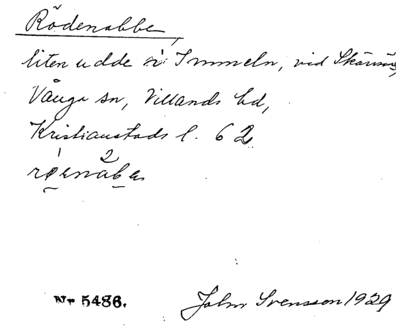 Rödenabbe,
liten udde vid Immeln, vid
Vånga sn, Villands hd,
Kristianstads l. 62
Nr 5486.
John Svensson 1929